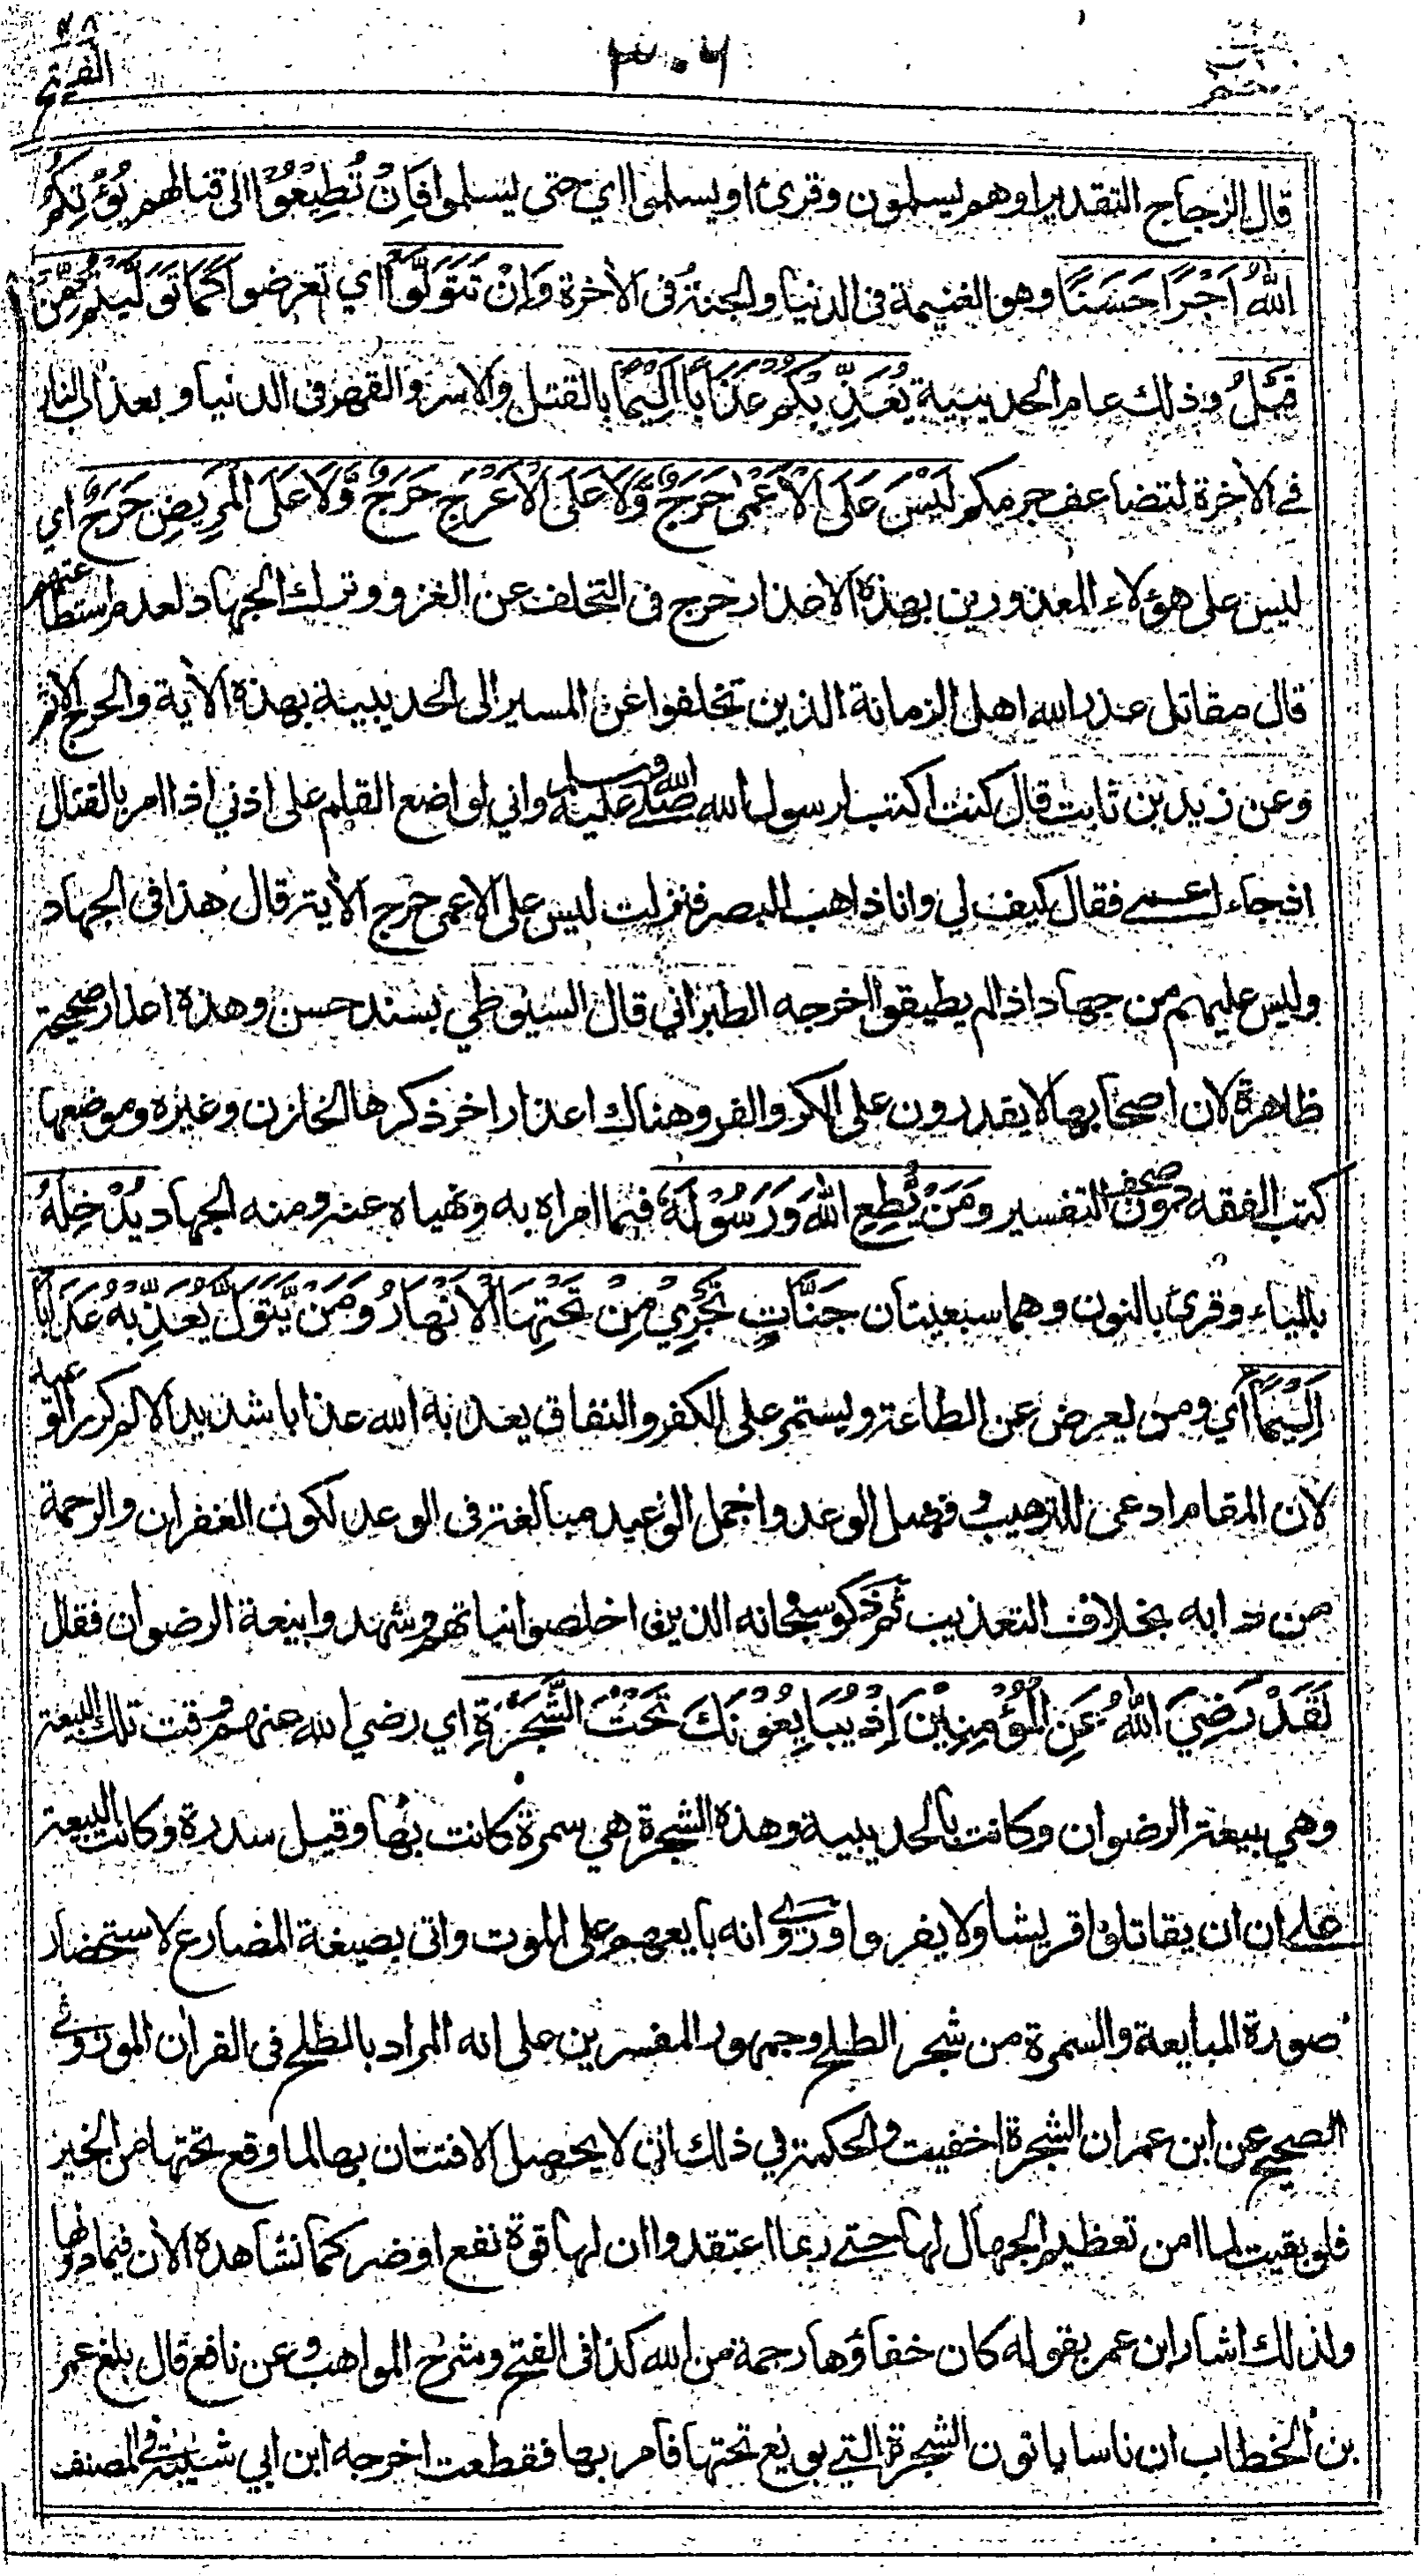 ٣٠٦
الفتح ٤٨
قال الزجاج التقدير او هم يسلمون وقرئ او يسلموا اي حتى يسلموا فَاِنْ تُطِيْعُوْا الى قتالهم يُؤْتِكُمُ
اللّٰهُ اَجْرًا حَسَنًا وهو الغنيمة في الدنيا والجنة في الاٰخرة وَاِنْ تَتَوَلَّوْا اي تعرضوا كَمَا تَوَلَّيْتُمْ مِّنْ
قَبْلُ وذلك عام الحديبية يُعَذِّبْكُمْ عَذَابًا اَلِيْمًا بالقتل والاسر والقهر في الدنيا وبعذاب النار
في الاٰخرة لتضاعف جرمكم لَيْسَ عَلَى الْاَعْمٰى حَرَجٌ وَّلَا عَلَى الْاَعْرَجِ حَرَجٌ وَّلَا عَلَى الْمَرِيْضِ حَرَجٌ اي
ليس على هؤلاء المعذورين بهذه الاعذار حرج في التخلف عن الغزو وترك الجهاد لعدم استطاعتهم
قال مقاتل عذر الله اهل الزمانة الذين تخلفوا عن المسير الى الحديبية بهذه الاٰية والحرج الاثم
وعن زيد بن ثابت قال كنت اكتب لرسول الله صلى الله عليه وسلم واني لواضع القلم على اذني اذا امر بالقتال
اذ جاء اعمى فقال كيف لي وانا ذاهب البصر فنزلت ليس على الاعمى حرج الاٰية قال هذا في الجهاد
وليس عليهم من جهاد اذا لم يطيقوا اخرجه الطبراني قال السيوطي بسند حسن وهذه اعذار صحيحة
ظاهرة لان اصحابها لا يقدرون على الكر والفر وهناك اعذار اخر ذكرها الخازن وغيره وموضعها
كتب الفقه دون صحف التفسير وَمَنْ يُّطِعِ اللّٰهَ وَرَسُوْلَهٗ فيما امراه به ونهياه عنه ومنه الجهاد يُدْخِلْهُ
بالياء وقرئ بالنون وهما سبعيتان جَنّٰاتٍ تَجْرِيْ مِنْ تَحْتِهَا الْاَنْهَارُ وَمَنْ يَّتَوَلَّ يُعَذِّبْهُ عَذَابًا
اَلِيْمًا اي ومن يعرض عن الطاعة ويستمر على الكفر والنفاق يعذبه الله عذابا شديد الالم كرر الوعيد
لان المقام ادعى للترهيب وفصل الوعد واجمل الوعيد مبالغة في الوعد لكون الغفران والرحمة
من دابه بخلاف التعذيب ثم ذكر سبحانه الذين اخلصوا نياتهم وشهدوا بيعة الرضوان فقال
لَقَدْ رَضِيَ اللّٰهُ عَنِ الْمُؤْمِنِيْنَ اِذْ يُبَايِعُوْنَكَ تَحْتَ الشَّجَرَةِ اي رضي الله عنهم وقت تلك البيعة
وهي بيعة الرضوان وكانت بالحديبية وهذه الشجرة هي سمرة كانت بها وقيل سدرة وكانت البيعة
على ان ان يقاتلوا قريشا ولا يفروا وروي انه بايعهم على الموت واتى بصيغة المضارع لاستحضار
صورة المبايعة والسمرة من شجر الطلح وجمهور المفسرين على انه المراد بالطلح في القران المروي في
الصحيح عن ابن عمر ان الشجرة اخفيت والحكمة في ذلك ان لا يحصل الافتتان بها لما وقع تحتها من الخير
فلو بقيت لما امن تعظيم الجهال لها حتى ربما اعتقدوا ان لها قوة نفع او ضر كما نشاهده الاٰن فيما دونها
ولذلك اشار ابن عمر بقوله كان خفاؤها رحمة من الله كذا في الفتح وشرح المواهب وعن نافع قال بلغ عمر
بن الخطاب ان ناسا ياتون الشجرة التي بويع تحتها فامر بها فقطعت اخرجه ابن ابي شيبة في المصنف